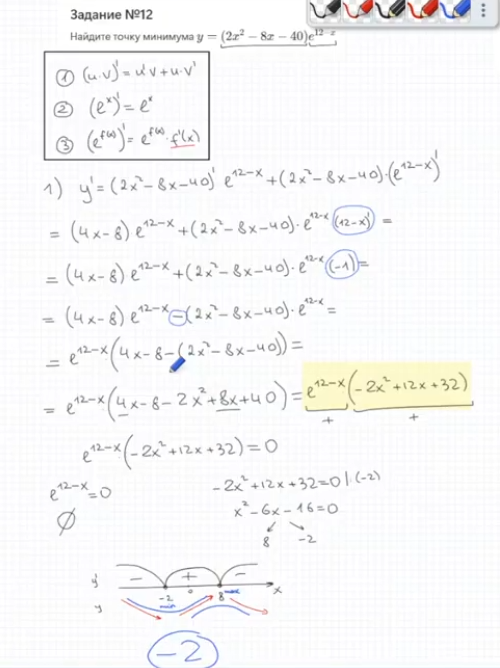 Задание №12
Найдите точку минимума y = (2x² − 8x − 40)e^(12−x)
① (u·v)' = u'v + u·v'
② (eˣ)' = eˣ
③ (e^f(x))' = e^f(x) · f'(x)
1) y' = (2x² − 8x − 40)' e^(12−x) + (2x² − 8x − 40)·(e^(12−x))'
= (4x − 8) e^(12−x) + (2x² − 8x − 40)· e^(12−x) (12−x)' =
= (4x − 8) e^(12−x) + (2x² − 8x − 40)· e^(12−x) (−1) =
= (4x − 8) e^(12−x) − (2x² − 8x − 40)· e^(12−x) =
= e^(12−x) (4x − 8 − (2x² − 8x − 40)) =
= e^(12−x) (4x − 8 − 2x² + 8x + 40) = e^(12−x) (−2x² + 12x + 32)
+ +
e^(12−x) · (−2x² + 12x + 32) = 0
e^(12−x) = 0 −2x² + 12x + 32 = 0 |·(−2)
∅ x² − 6x − 16 = 0
8 −2
y' − + −
−2 0 8 x
y min max
−2